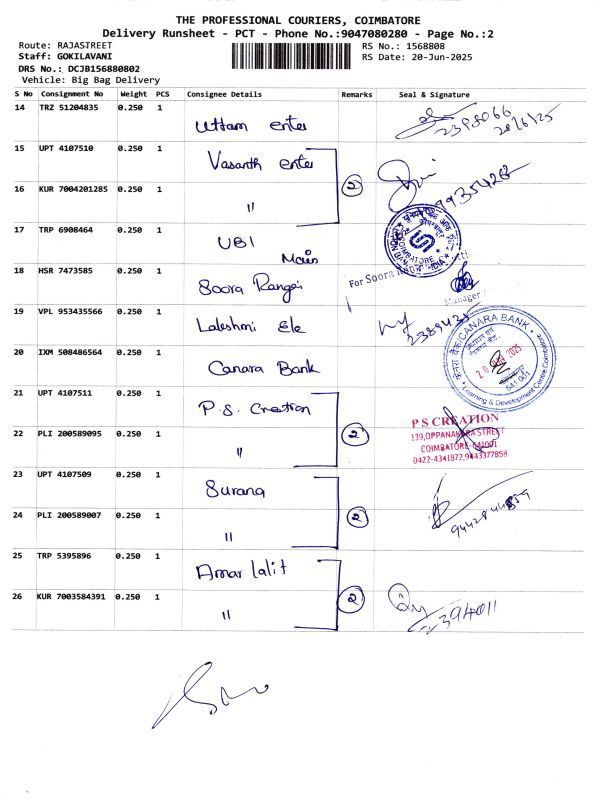 THE PROFESSIONAL COURIERS, COIMBATORE
Delivery Runsheet - PCT - Phone No.:9047080280 - Page No.:2
Route: RAJASTREET
RS No.: 1568808
Staff: GOKILAVANI
RS Date: 20-Jun-2025
DRS No.: DCJB156880802
Vehicle: Big Bag Delivery
S No Consignment No Weight PCS Consignee Details Remarks Seal & Signature
14 TRZ 51204835 0.250 1
Uttam enter
2398066
20/6/25
15 UPT 4107510 0.250 1
Vasanth enter
16 KUR 7004201285 0.250 1
"
2
17 TRP 6908464 0.250 1
UBI
Main
COIMBATORE
18 HSR 7473585 0.250 1
Soora Rangei
For Soora
Manager
19 VPL 953435566 0.250 1
Lakshmi Ele
20 IXM 508486564 0.250 1
Canara Bank
केनरा बैंक/CANARA BANK
20 JUN 2025
641 001
Learning & Development Centre Coimbatore
21 UPT 4107511 0.250 1
P.S. Creation
22 PLI 200589095 0.250 1
"
2
P S CREATION
139,OPPANAKARA STREET
COIMBATORE-641001
0422-4341872,9443377858
23 UPT 4107509 0.250 1
Surana
24 PLI 200589007 0.250 1
"
2
25 TRP 5395896 0.250 1
Amar lalit
26 KUR 7003584391 0.250 1
"
2
2394011